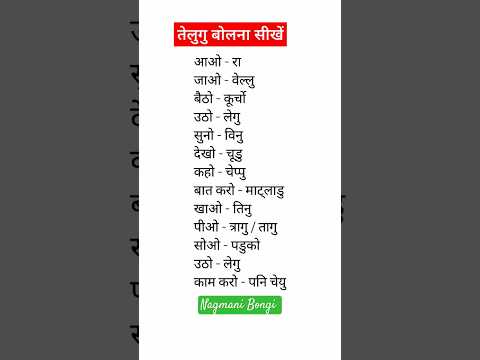 तेलुगु बोलना सीखें
आओ - रा
जाओ - वेल्लु
बैठो - कूर्चो
उठो - लेगु
सुनो - विनु
देखो - चूडु
कहो - चेप्पु
बात करो - माट्लाडु
खाओ - तिनु
पीओ - त्रागु / तागु
सोओ - पडुको
उठो - लेगु
काम करो - पनि चेयु
Nagmani Bongi